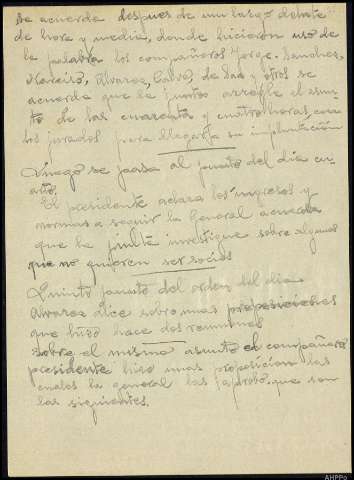 se acuerda despues de un largo debate
de hora y media, donde hicieron uso de
la palabra los compañeros Jorge. Sanches,
Narciso, Alvarez, Calvo, de Saa y otros se
acuerda que la junta arregle el asun-
to de las cuarenta y cuatro horas, con
los jurados para llegar a su implantación
Luego se paasa al punto del dia cu-
arto.
El presidente aclara los ingresos y
normas a seguir la General acuerda
que la junta investigue sobre algunos
que no quieren ser socios
Quinto punto del orden del dia.
Alvarez dice sobre unas proposiciones
que hizo hace dos reuniones
sobre el mismo asunto el compañero
presidente hizo unas proposicion las
cuales la general las aprobó, que son
las siguientes.
AHPPo